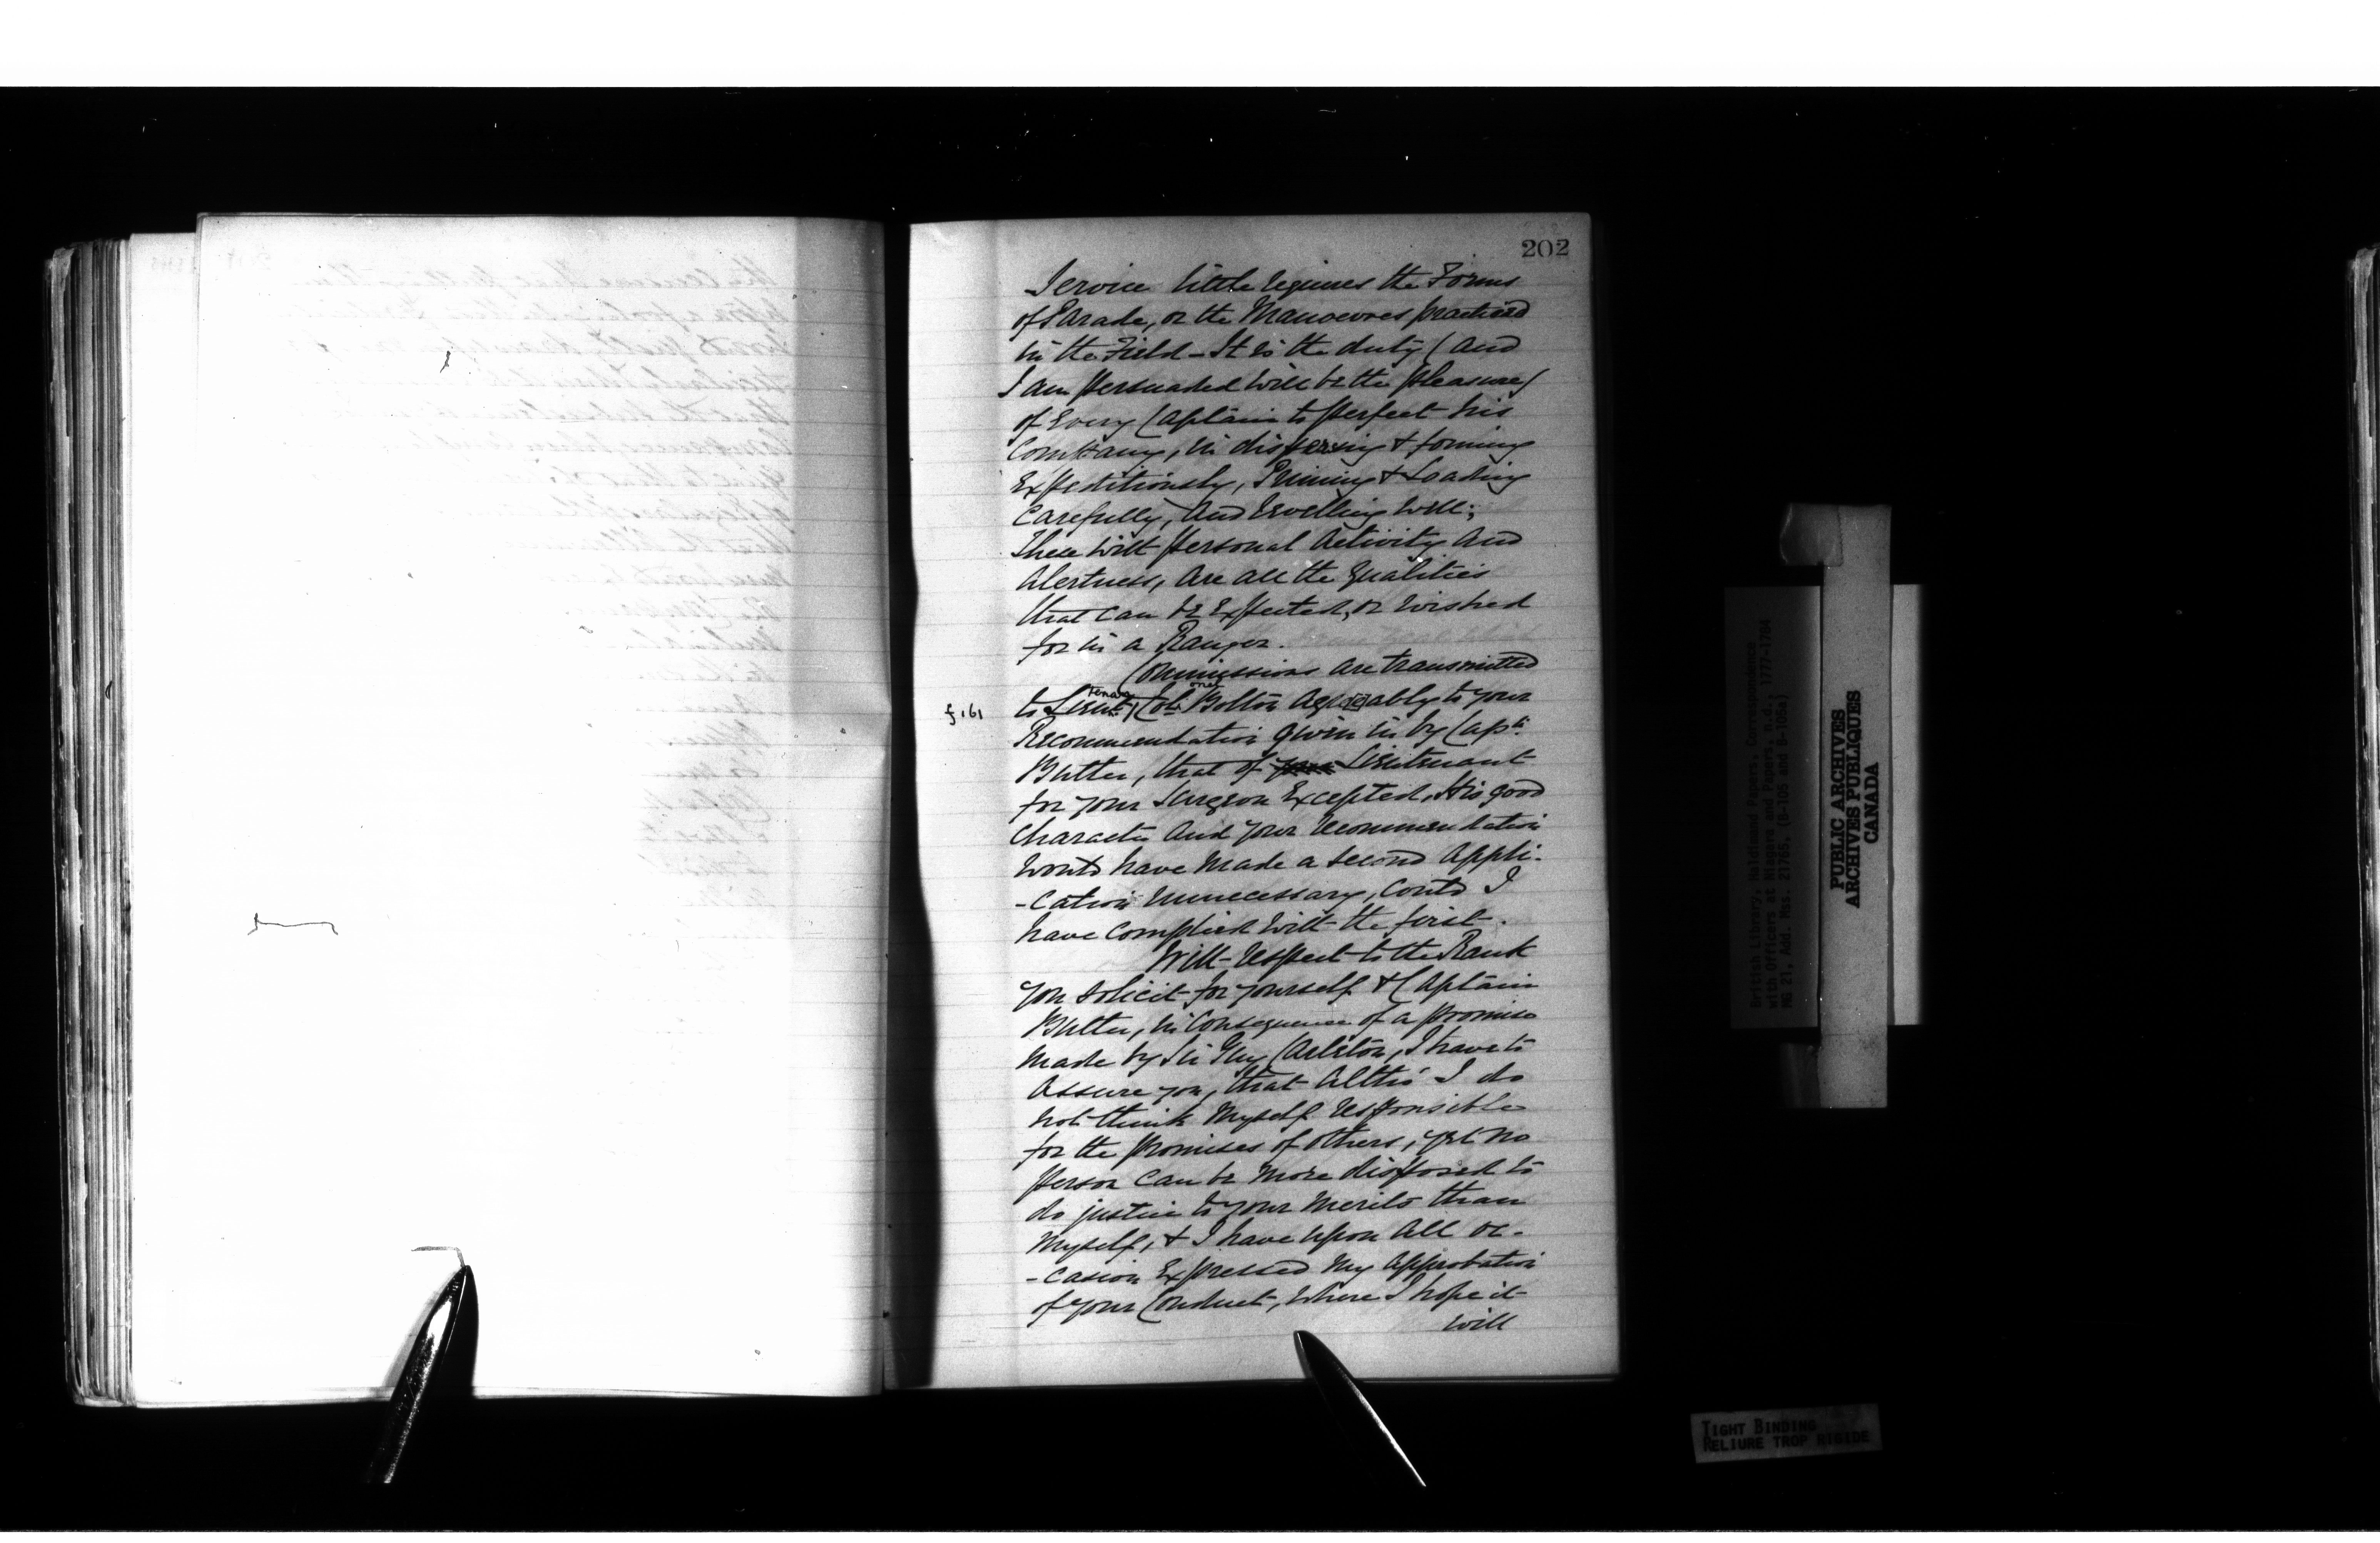 202
Service little requires the Forms
of Parade, or the Manoevres practised
in the Field - It is the duty (and
I am persuaded will be the pleasure)
of Every Captain to perfect his
Company, in dispersing & forming
Expeditiously, Priming & Loading
Carefully, and levelling well;
These with personal Activity and
Alertness, are all the Qualities
that can be Expected, or wished
for in a Ranger.
Commissions are transmitted
f 161
to Lieutenant Colonel Bolton Agreeably to your
Recommendation given in by Capt:
Butler, that of Lieutenant
for your Surgeon Excepted, His good
Character and your recommendation
would have made a second Appli-
-cation unnecessary, could I
have complied with the first.
With respect to the Rank
you solicit for yourself & Captain
Butler, in Consequence of a promise
made by Sir Guy Carleton, I have to
Assure you, that Altho' I do
not think Myself responsible
for the promises of others, yet no
person can be more disposed to
do justice to your Merits than
Myself, & I have upon All oc-
-casion Expressed my Approbation
of your Conduct, where I hope it
will
British Library, Haldimand Papers, Correspondence
with Officers at Niagara and Papers, n.d., 1777-1784
MG 21, Add. Mss. 21765. (B-105 and B-105a)
PUBLIC ARCHIVES
ARCHIVES PUBLIQUES
CANADA
TIGHT BINDING
RELIURE TROP RIGIDE